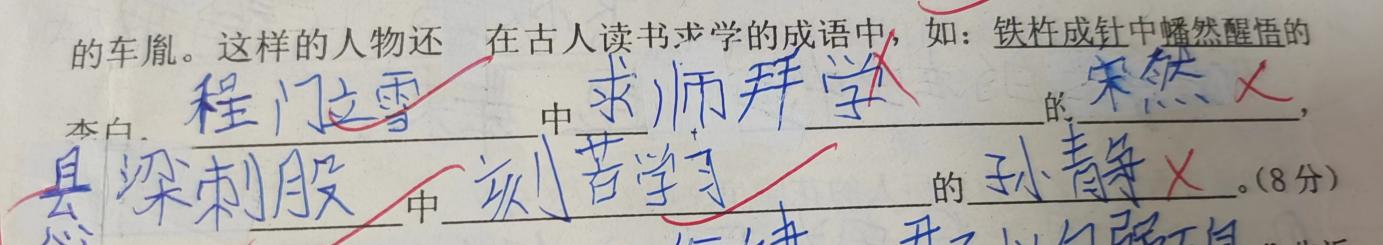 的车胤。这样的人物还 在古人读书求学的成语中，如：铁杵成针中蟠然醒悟的
李白、程门立雪中求师拜学的宋然，
县梁刺股中刻苦学习的孙静。(8分)